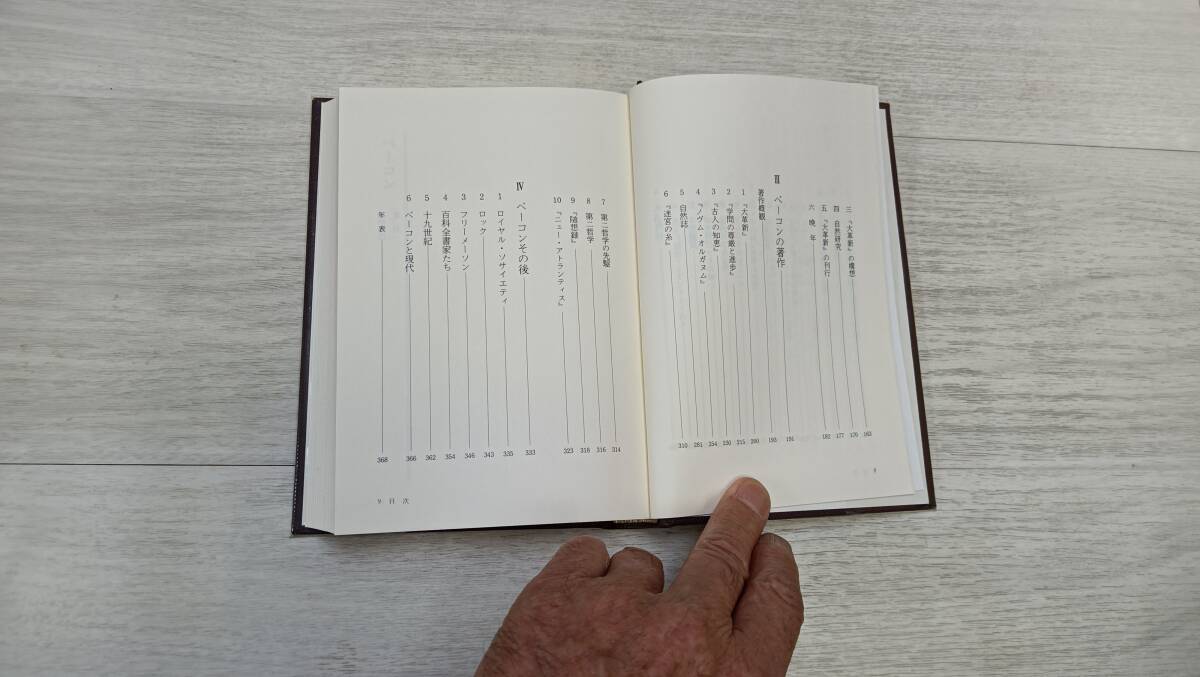 三 『大革新』の構想 163
四 自然研究 170
五 『大革新』の刊行 177
六 晩年 182
Ⅲ ベーコンの著作 191
著作概観 193
1 『大革新』 200
2 『学問の尊厳と進歩』 215
3 『古人の知恵』 230
4 『ノヴム・オルガヌム』 254
5 自然誌 281
6 『迷宮の糸』 310
8
7 第二哲学の先駆 314
8 第二哲学 316
9 『随想録』 318
10 『ニュー・アトランティス』 323
Ⅳ ベーコンその後 333
1 ロイヤル・ソサイエティ 335
2 ロック 343
3 フリーメーソン 346
4 百科全書家たち 354
5 十九世紀 362
6 ベーコンと現代 366
年表 368
9 目次